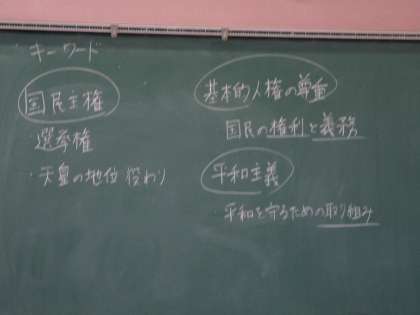 キーワード
国民主権
選挙権
・天皇の地位 役わり
基本的人権の尊重
国民の権利と義務
平和主義
・平和を守るための取り組み